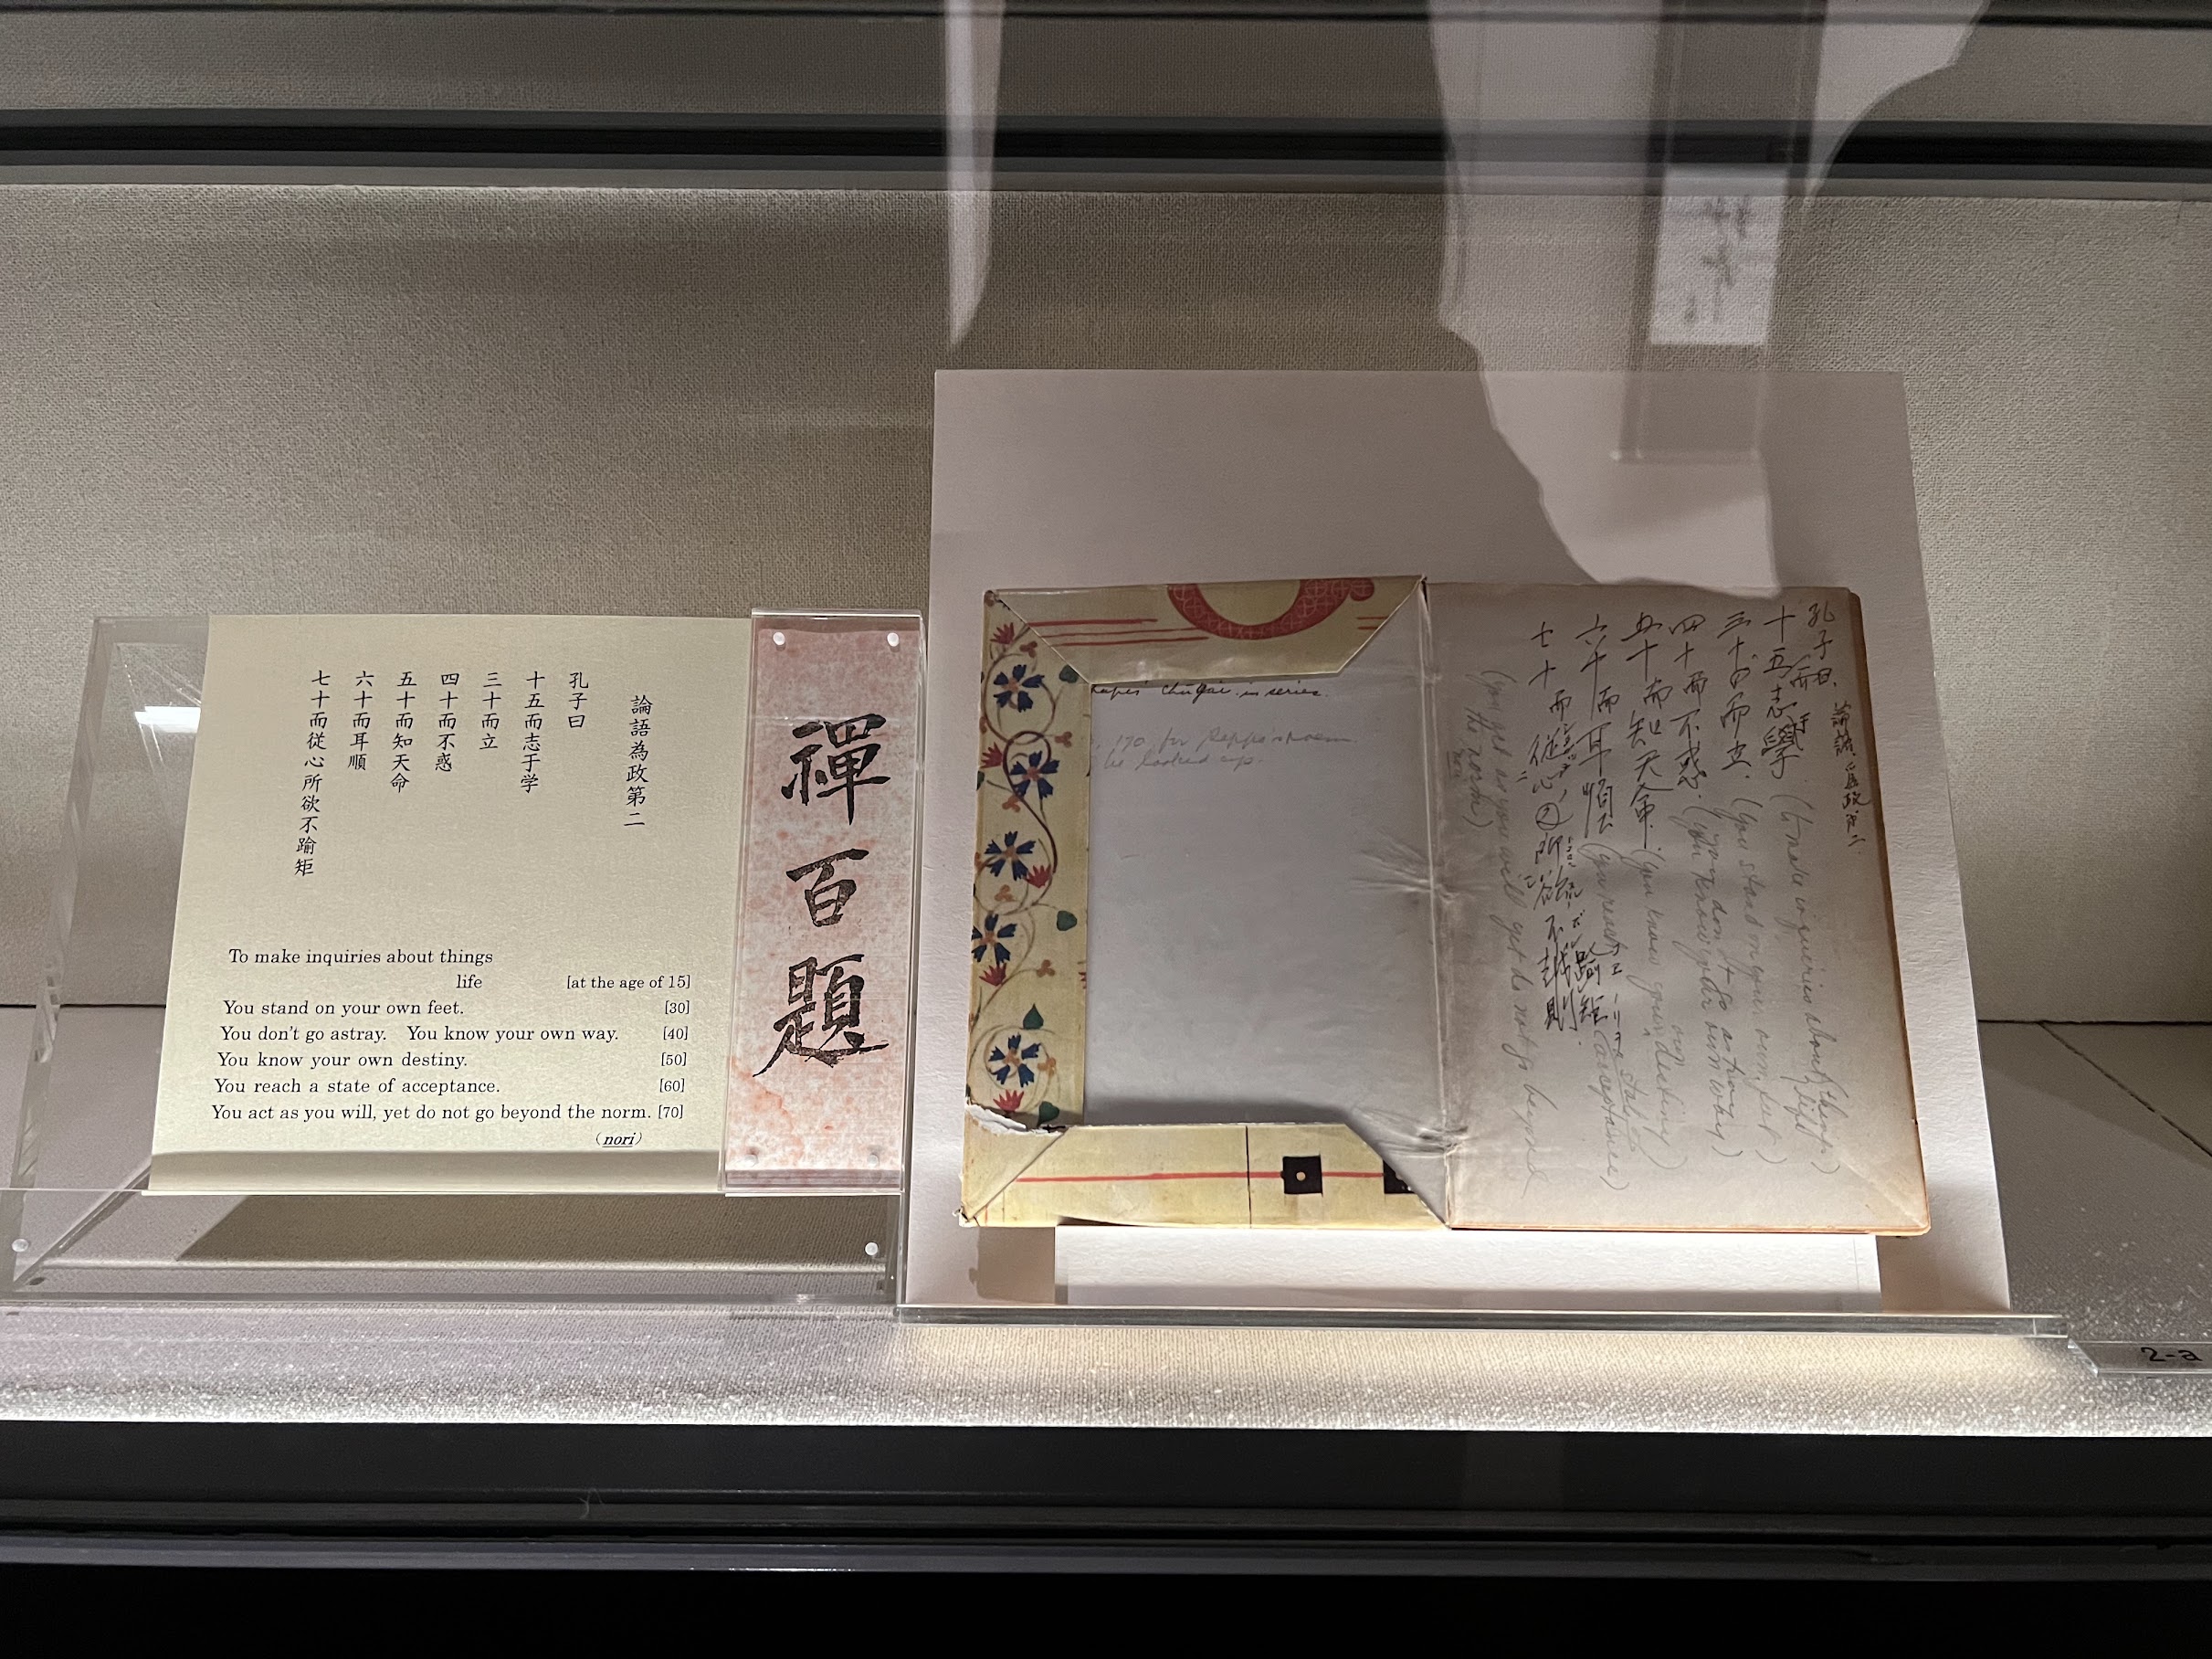 論語為政第二
孔子曰
十五而志于学
三十而立
四十而不惑
五十而知天命
六十而耳順
七十而従心所欲不踰矩
To make inquiries about things
life [at the age of 15]
You stand on your own feet. [30]
You don't go astray. You know your own way. [40]
You know your own destiny. [50]
You reach a state of acceptance. [60]
You act as you will, yet do not go beyond the norm. [70]
(nori)
禪百題
chūgai in series.
170 for
be looked up.
論語 為政 第二
孔子曰、
十五而志于學 (to make inqueries about things life)
三十而立. (you stand on your own feet)
四十而不惑. (you don't go astray you know your own way)
五十而知天命. (you know your own destiny)
六十而耳順 (you reach a state of acceptance)
七十而従心所欲不踰矩
the norm)
nori
2-a